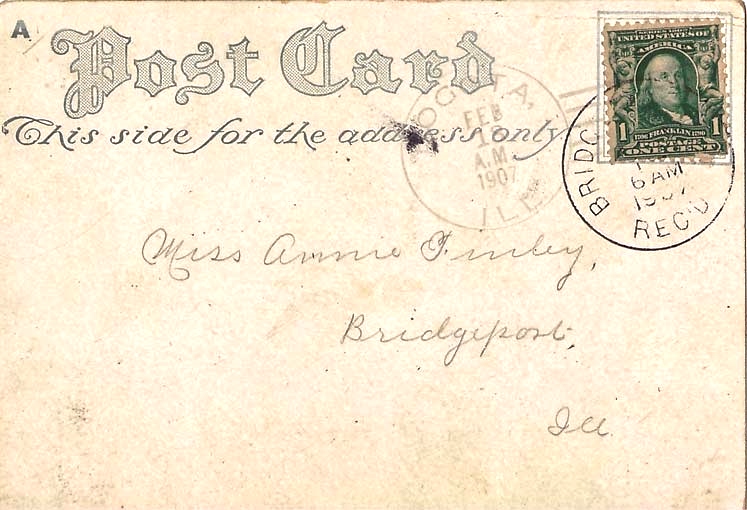 A
Post Card
This side for the address only
FEB
A.M.
1907
ILL
SERIES 1902
UNITED STATES OF
AMERICA
1 FRANKLIN 1
POSTAGE
ONE CENT
6 AM
REC'D
Miss Annie Finley,
Bridgeport,
Ill